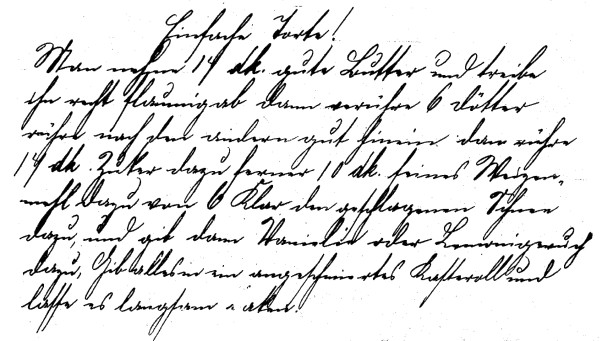 Einfache Torte!
Man nehme 14 dk. gute Butter und treibe
ihn recht flaumig ab dann verrühre 6 Dötter
rühre nach dem andern gut hinein dan rühre
14 dk. Zuker dazu ferner 10 dk. feines Weizen-
mehl dazu von 6 Klar den geschlagenen Schnee
dazu, und gib dann Vanielie oder Lemonigeruch
dazu, Gib alles in ein angeschmiertes Kasteroll und
lasse es langsam